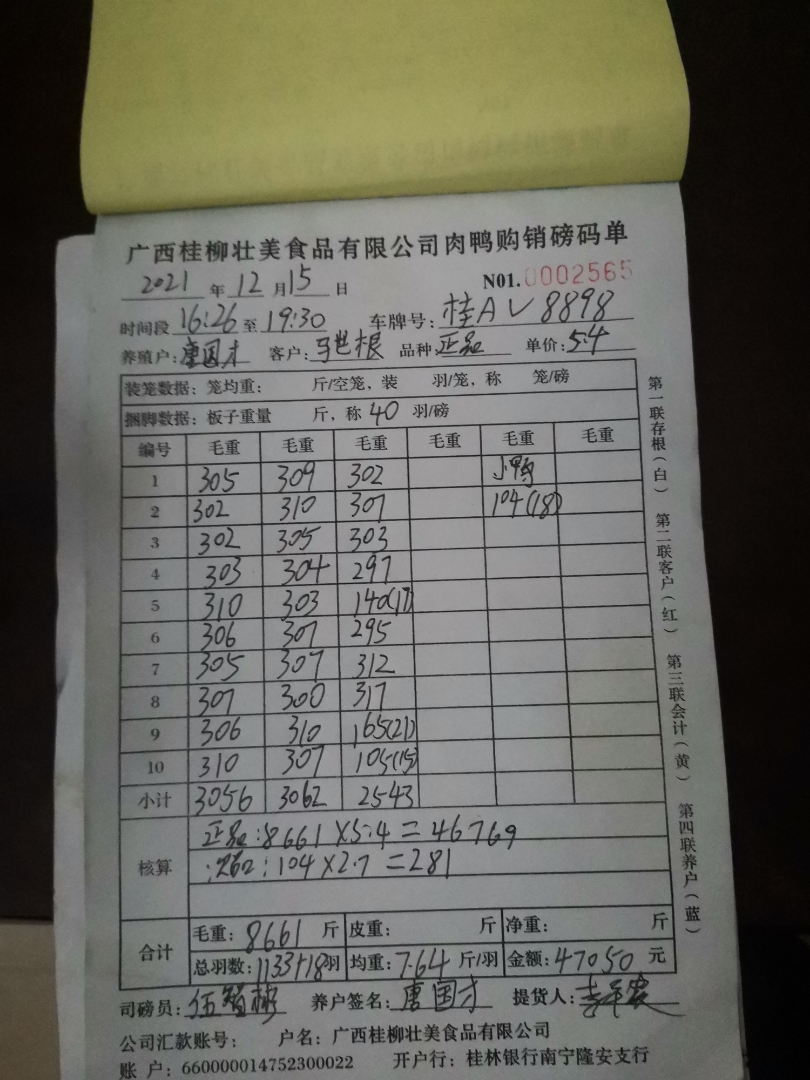 广西桂柳壮美食品有限公司肉鸭购销磅码单
2021 年 12 月 15 日 N01. 0002565
时间段 16:26 至 19:30 车牌号: 桂A V 8898
养殖户: 唐国才 客户: 马世根 品种 正品 单价: 5.4
装笼数据: 笼均重: 斤/空笼, 装 羽/笼, 称 笼/磅
捆脚数据: 板子重量 斤, 称 40 羽/磅
编号 毛重 毛重 毛重 毛重 毛重 毛重
1 305 309 302 小鸭
2 302 310 307 104(18)
3 302 305 303
4 303 304 297
5 310 303 140(17)
6 306 307 295
7 305 307 312
8 307 300 317
9 306 310 165(21)
10 310 307 105(15)
小计 3056 3062 2543
核算
正品: 8661 X 5.4 = 46769
: 104 X 2.7 = 281
合计
毛重: 8661 斤 皮重: 斤 净重: 斤
总羽数: 1133+18羽 均重: 7.64 斤/羽 金额: 47050 元
司磅员: 伍智彬 养户签名: 唐国才 提货人:
公司汇款账号: 户名: 广西桂柳壮美食品有限公司
账 户: 660000014752300022 开户行: 桂林银行南宁隆安支行
第一联存根(白) 第二联客户(红) 第三联会计(黄) 第四联养户(蓝)